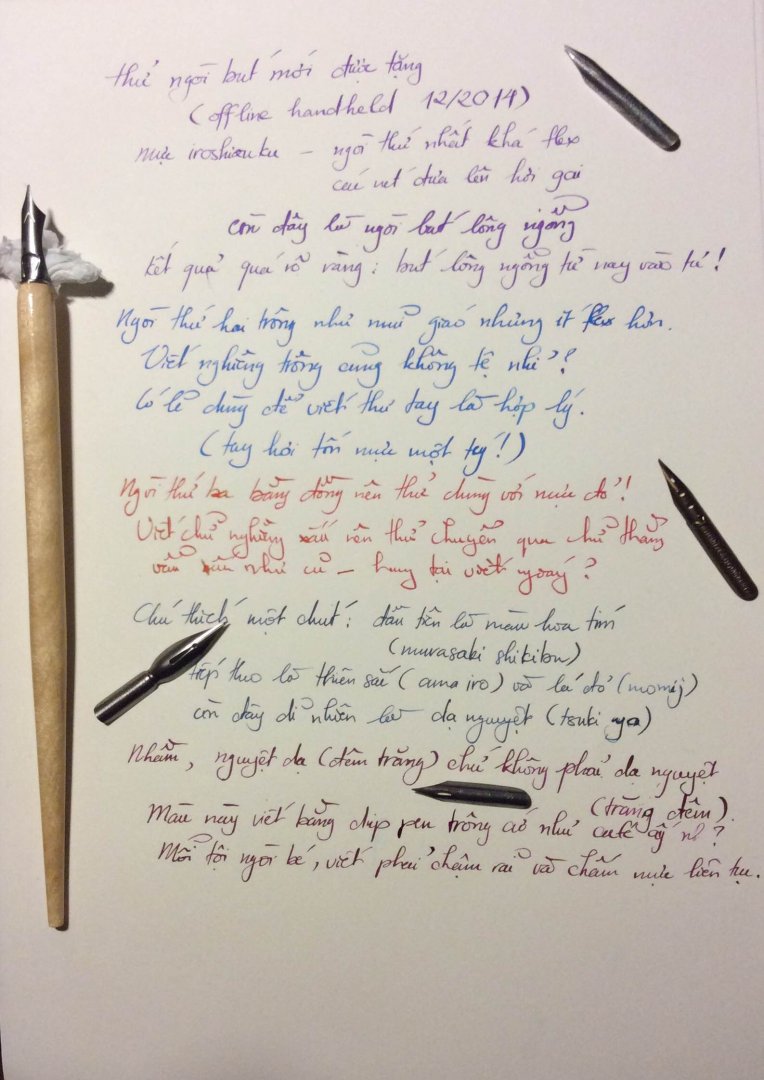 thử ngòi bút mới được tặng
(offline handheld 12/2014)
mực iroshizuku – ngòi thứ nhất khá flex
các nét đưa lên hơi gai
còn đây là ngòi bút lông ngỗng
kết quả quá rõ ràng: bút lông ngỗng từ nay vào tủ!
Ngòi thứ hai trông như mũi giáo nhưng ít flex hơn.
Viết nghiêng trông cũng không tệ nhỉ?
Có lẽ dùng để viết thư tay là hợp lý.
(tay hơi tốn mực một tý!)
Ngòi thứ ba bằng đồng nên thử dùng với mực đỏ!
Viết chữ nghiêng xấu nên thử chuyển qua chữ thẳng
vẫn xấu như cũ – hay tại viết ngoáy?
Chú thích một chút: đầu tiên là màu hoa tím
(murasaki shikibu)
tiếp theo là thiên sắc (ama iro) và lá đỏ (momiji)
còn đây dĩ nhiên là dạ nguyệt (tsuki yo)
Nhầm, nguyệt dạ (đêm trăng) chứ không phải dạ nguyệt
(trăng đêm).
Màu này viết bằng dip pen trông cứ như cafe ấy nhỉ?
Mỗi tội ngòi bé, viết phải chậm rãi và chấm mực liên tục.